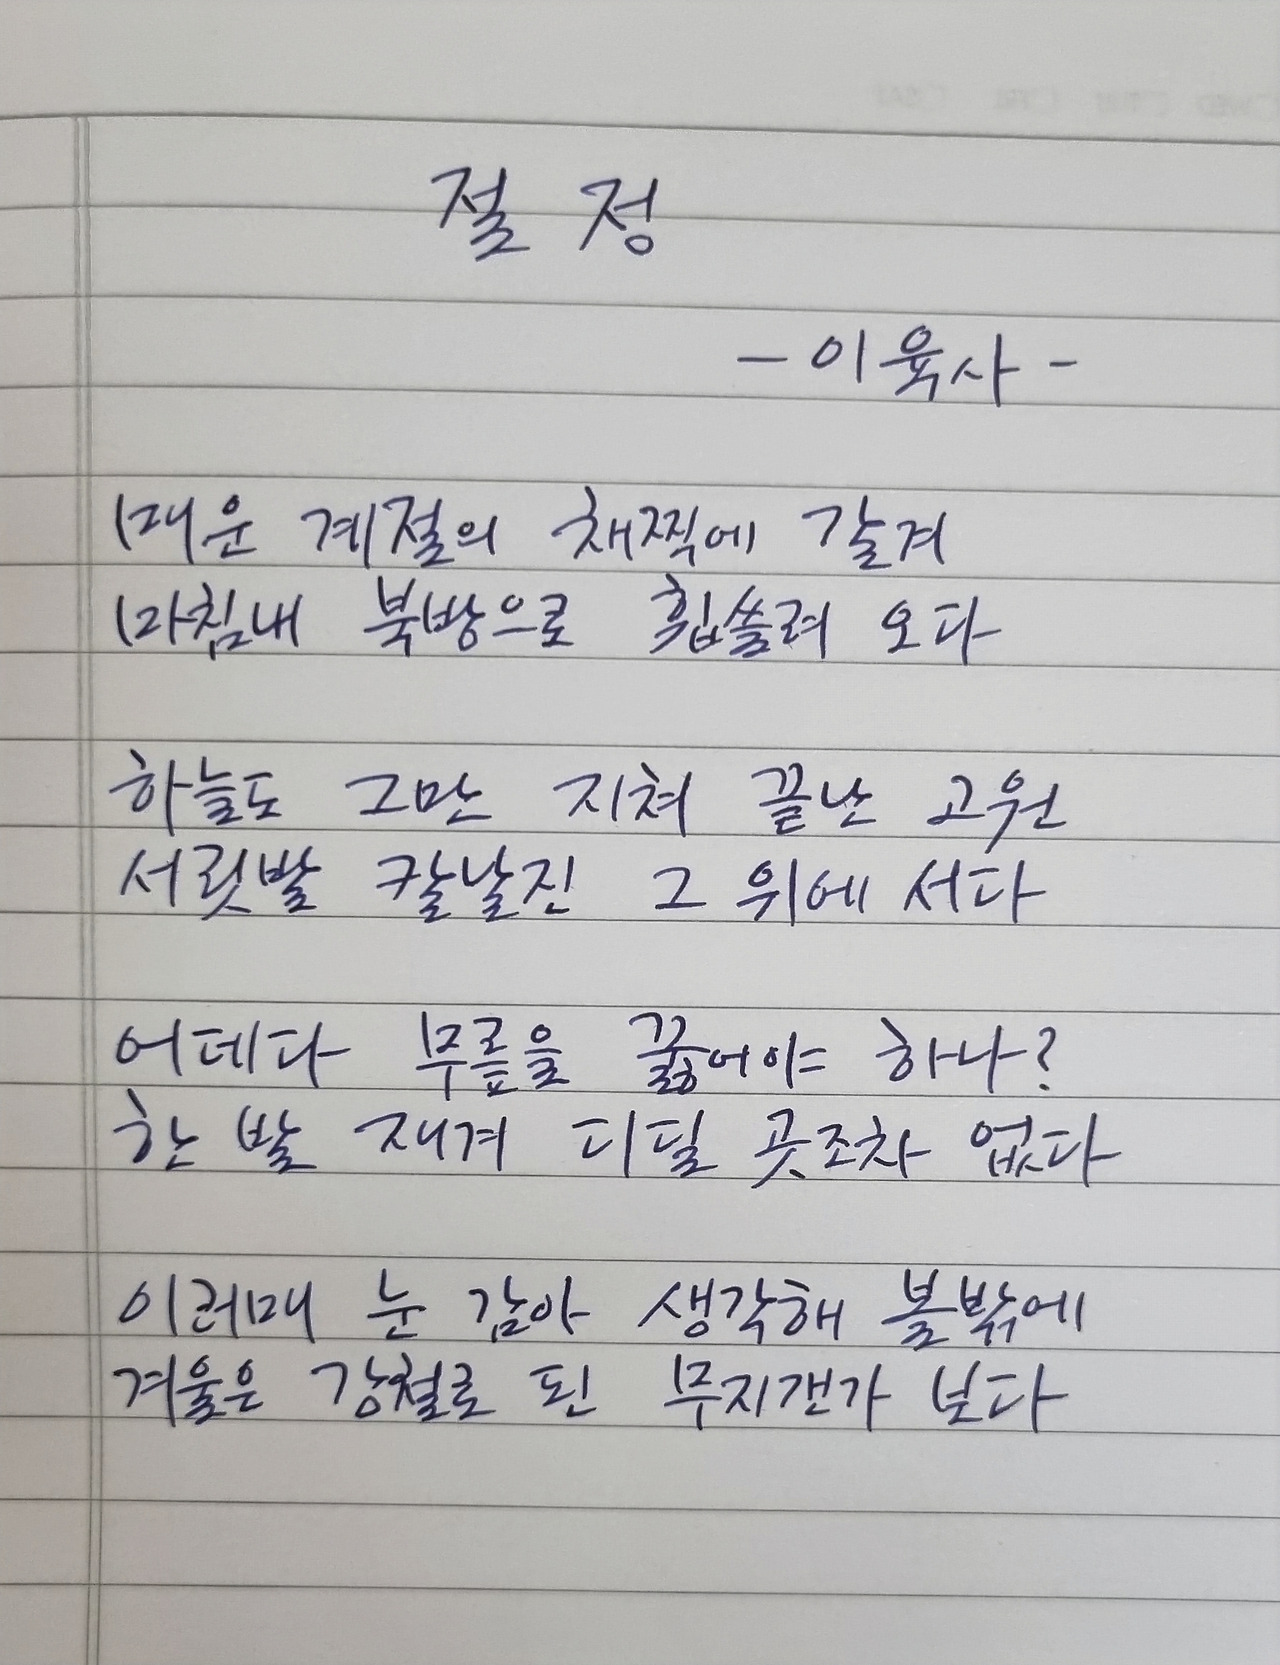 절 정
- 이육사 -
매운 계절의 채찍에 갈겨
마침내 북방으로 휩쓸려 오다
하늘도 그만 지쳐 끝난 고원
서릿발 칼날진 그 위에 서다
어데다 무릎을 꿇어야 하나?
한 발 재겨 디딜 곳조차 없다
이러매 눈 감아 생각해 볼밖에
겨울은 강철로 된 무지갠가 보다